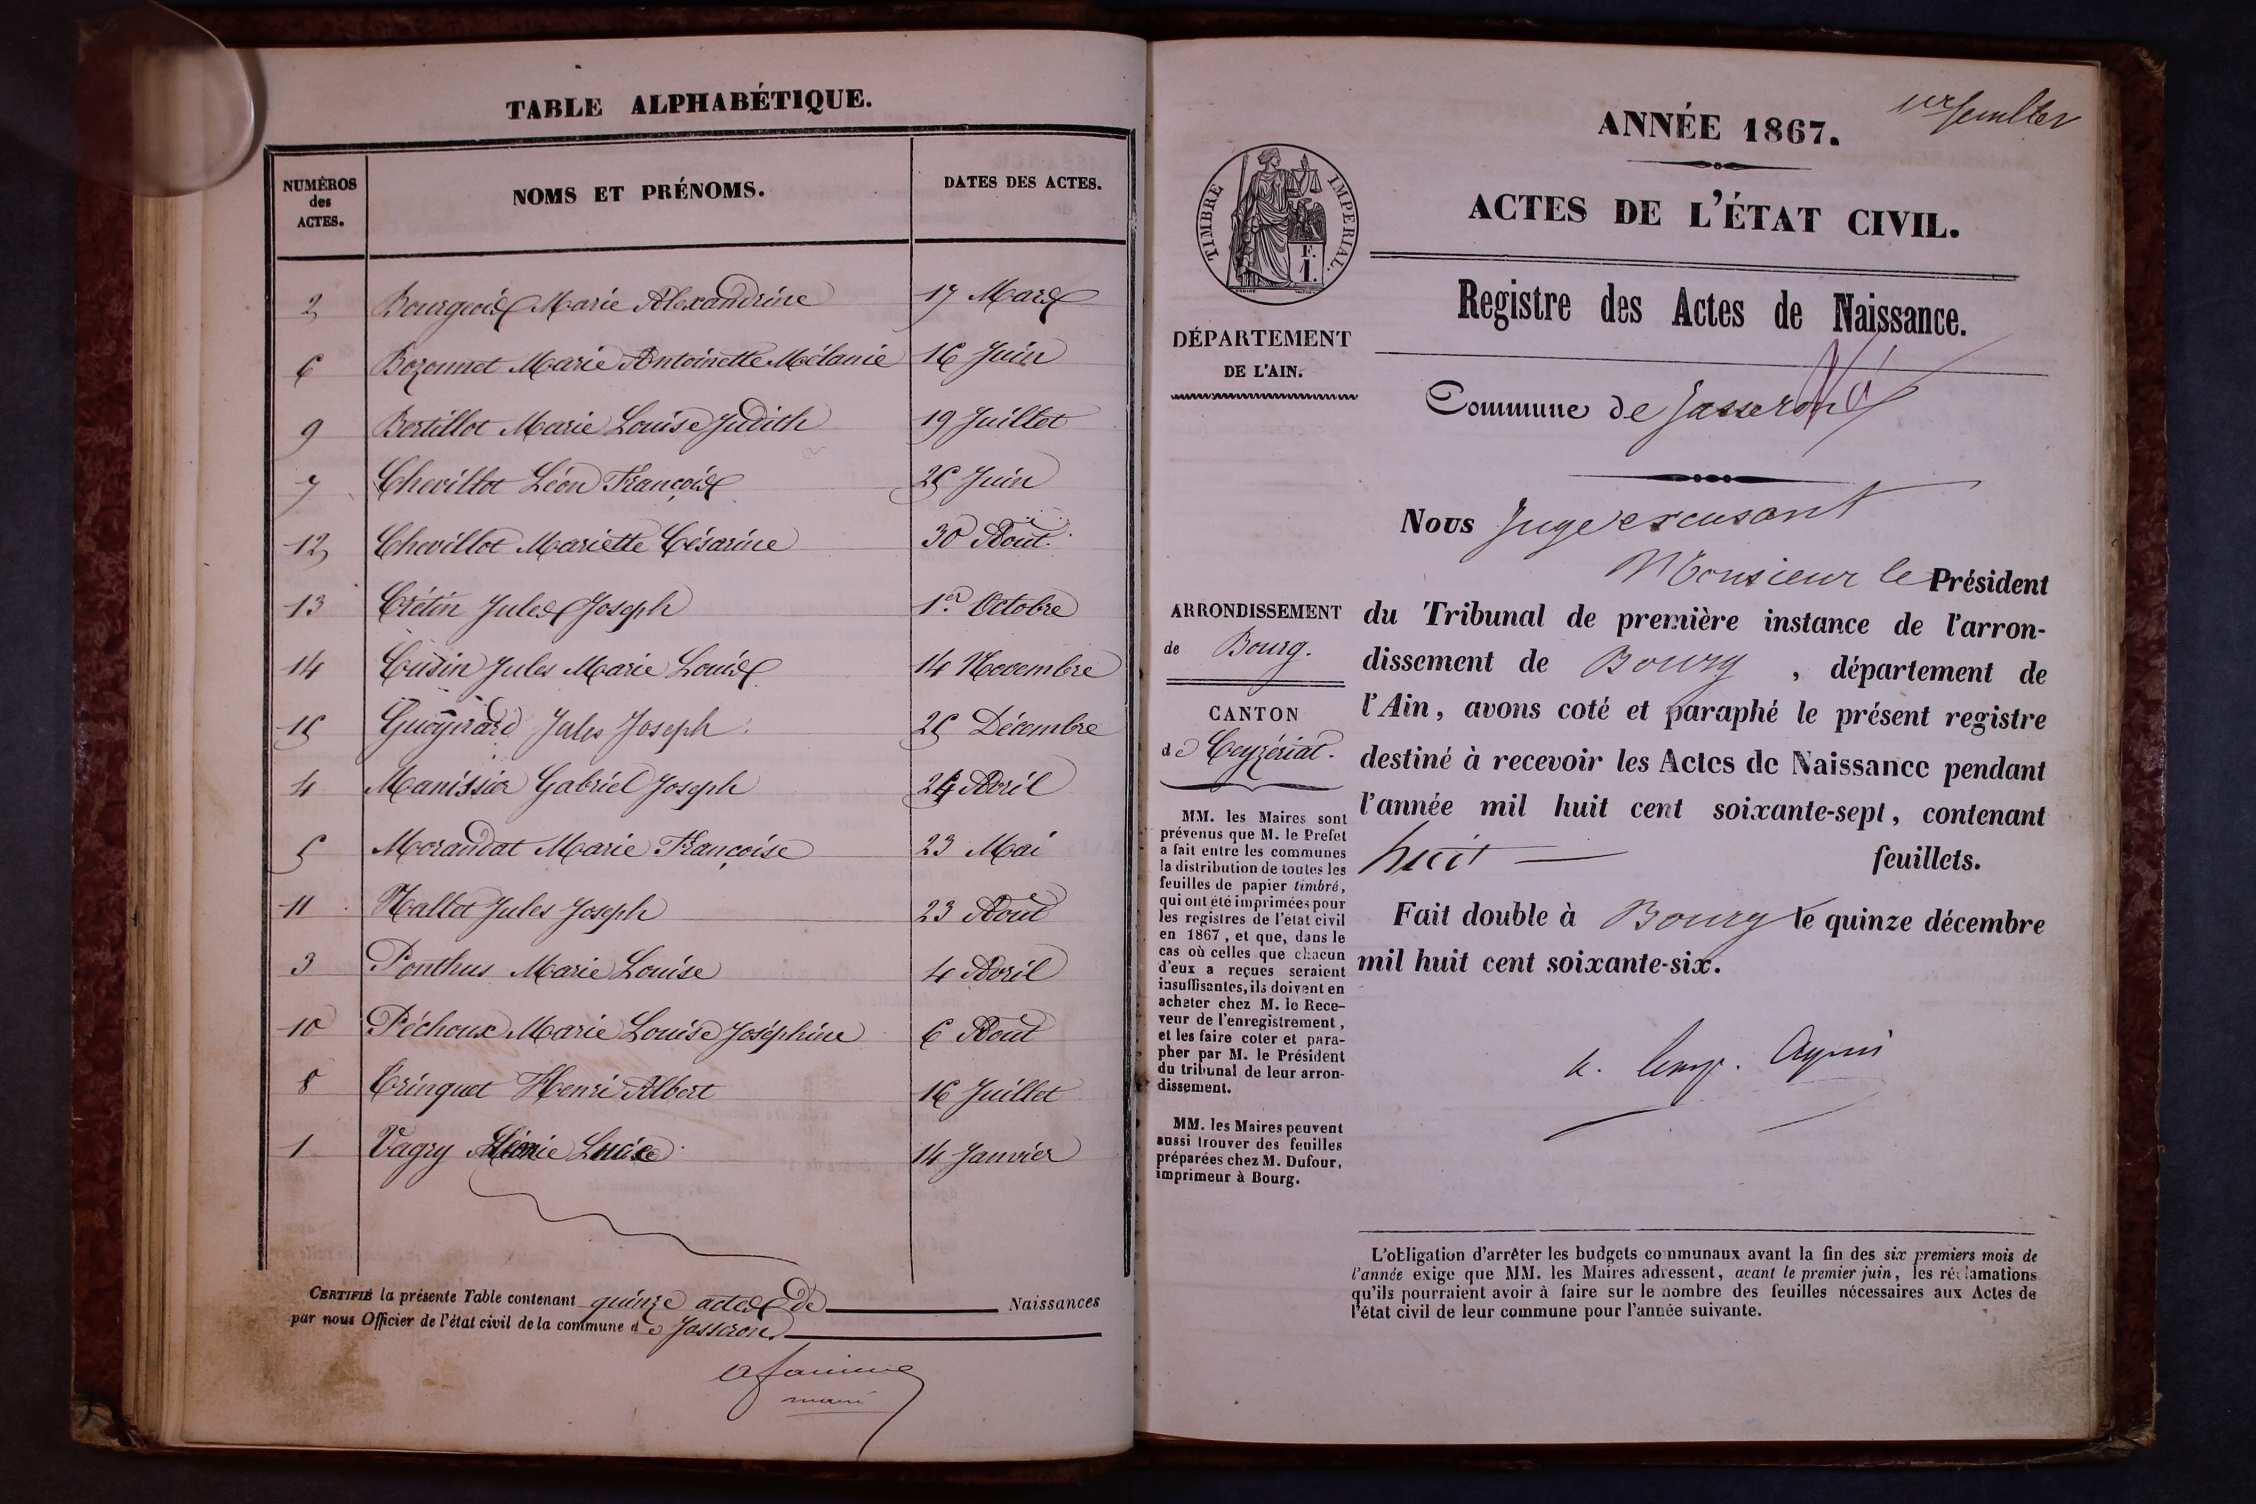 TABLE ALPHABÉTIQUE.
NUMÉROS des ACTES. NOMS ET PRÉNOMS. DATES DES ACTES.
2 Bourgeois Marie Alexandrine 17 Mars
6 Bozonnet Marie Antoinette Mélanie 16 Juin
9 Bertillot Marie Louise Judith 19 Juillet
7 Chevillot Léon François 25 Juin
12 Chevillot Mariette Césarine 30 Août
13 Crétin Jules Joseph 1er Octobre
14 Cusin Jules Marie Louis 14 Novembre
15 Jules Joseph 25 Décembre
4 Manissier Gabriel Joseph 24 Avril
5 Morandat Marie Françoise 23 Mai
11 Nallet Jules Joseph 23 Août
3 Ponthus Marie Louise 4 Avril
10 Péchoux Marie Louise Joséphine 6 Août
8 Tringuet Henri Albert 16 Juillet
1 Vagry 14 Janvier
CERTIFIÉ la présente Table contenant quinze actes de Naissances
par nous Officier de l'état civil de la commune de Jasseron
maire
1er feuillet
ANNÉE 1867.
ACTES DE L'ÉTAT CIVIL.
TIMBRE IMPERIAL.
F.
1.
Registre des Actes de Naissance.
DÉPARTEMENT
DE L'AIN.
Commune de Jasseron
Nous Juge excusant
Monsieur le Président
du Tribunal de première instance de l'arron-
dissement de Bourg, département de
l'Ain, avons coté et paraphé le présent registre
destiné à recevoir les Actes de Naissance pendant
l'année mil huit cent soixante-sept, contenant
huit feuillets.
Fait double à Bourg le quinze décembre
mil huit cent soixante-six.
ARRONDISSEMENT
de Bourg.
CANTON
de Ceyzériat.
MM. les Maires sont
prévenus que M. le Prefet
a fait entre les communes
la distribution de toutes les
feuilles de papier timbré,
qui ont été imprimées pour
les registres de l'état civil
en 1867, et que, dans le
cas où celles que chacun
d'eux a reçues seraient
insuffisantes, ils doivent en
acheter chez M. le Rece-
veur de l'enregistrement,
et les faire coter et para-
pher par M. le Président
du tribunal de leur arron-
dissement.
MM. les Maires peuvent
aussi trouver des feuilles
préparées chez M. Dufour,
imprimeur à Bourg.
L'obligation d'arrêter les budgets communaux avant la fin des six premiers mois de
l'année exige que MM. les Maires adressent, avant le premier juin, les réclamations
qu'ils pourraient avoir à faire sur le nombre des feuilles nécessaires aux Actes de
l'état civil de leur commune pour l'année suivante.